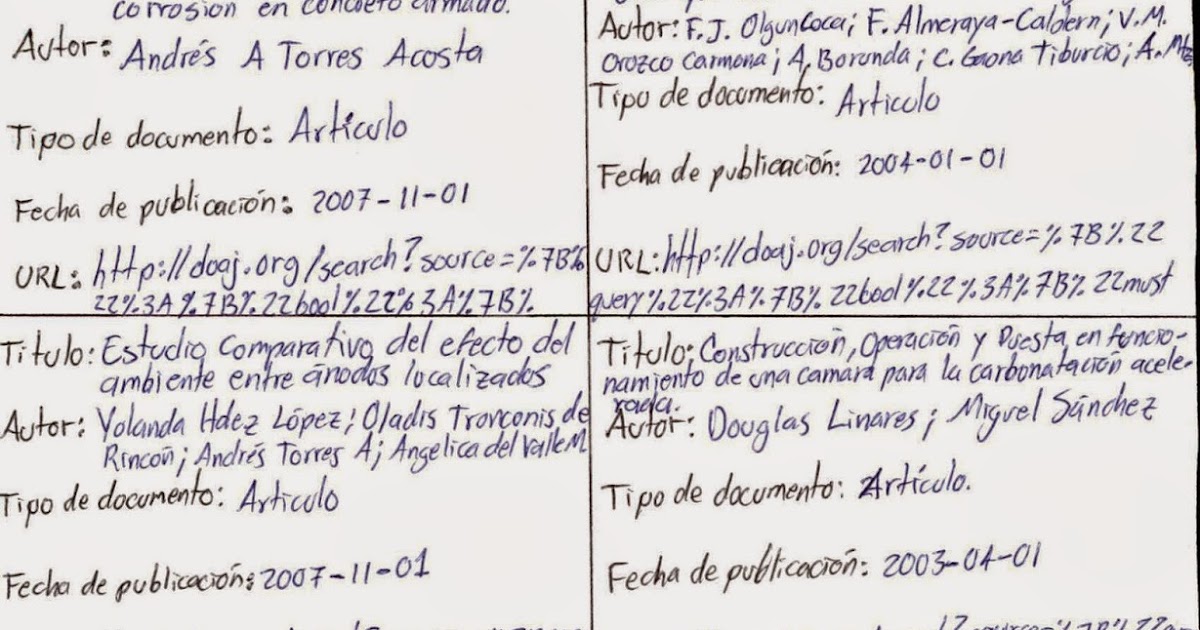 corrosión en concreto armado.
Autor: Andrés A Torres Acosta
Tipo de documento: Artículo
Fecha de publicación: 2007-11-01
URL: http://doaj.org/search?source=%7B%
22%3A%7B%22bool%22%3A%7B%
Autor: F.J. Olguncoca; F. Almeraya-Caldern; V.M.
Orozco Carmona; A. Borunda; C. Gaona Tiburcio; A. Mtz
Tipo de documento: Artículo
Fecha de publicación: 2004-01-01
URL: http://doaj.org/search?source=%7B%22
query%22%3A%7B%22bool%22%3A%7B%22must
Título: Estudio Comparativo del efecto del
ambiente entre ánodos localizados
Autor: Yolanda Hdez López; Oladis Troconis de
Rincón; Andrés Torres A; Angelica del Valle M
Tipo de documento: Artículo
Fecha de publicación: 2007-11-01
Título: Construcción, Operación y Puesta en funcio-
namiento de una camara para la carbonatación acele-
rada.
Autor: Douglas Linares; Miguel Sánchez
Tipo de documento: Artículo.
Fecha de publicación: 2003-04-01